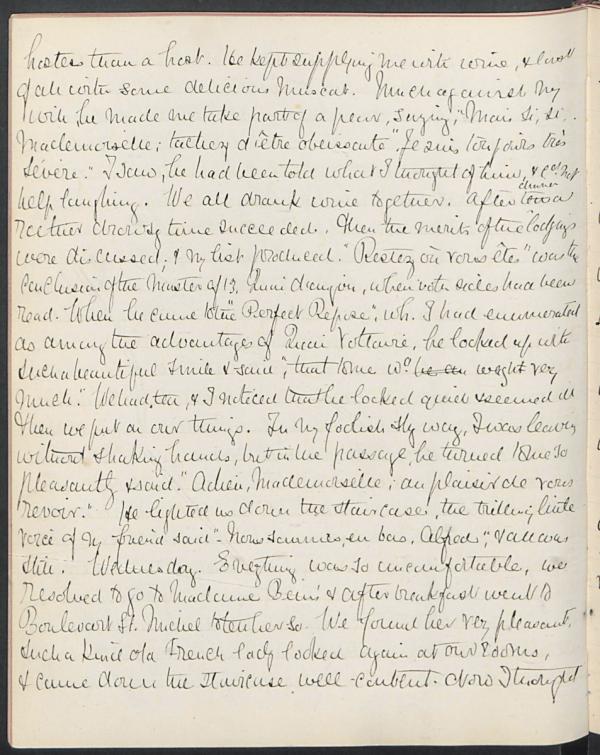 hostess than a host. He kept supplying me with wine, & last
of all with some delicious Muscat. Much against my
will, he made me take part of a pear, saying, "Mais si, si,
Mademoiselle; tachez d'être obeissante" "Je suis toujours très
sévère." I saw, he had been told what I thought of him, & cd not
help laughing. We all drank wine together. After dinner
rather drowsy time succeeded. Then the merits of the lodgings
were discussed, & my list produced. "Restez où vous êtes" was the
conclusion of the Master of 13, Quai d'Anjou, when both sides had been
read. When he came to the "Perfect Repose", wh. I had enumerated
as among the advantages of Quai Voltaire, he looked up with
such a beautiful smile & said "that to me wd weigh very
much." We had tea, & I noticed that he looked quiet & seemed ill
Then we put on our things. In my foolish shy way, I was leaving
without shaking hands, but in the passage, he turned to me so
pleasantly & said, "Adieu, Mademoiselle; au plaisir de vous
revoir." He lighted us down the staircase, the trilling little
voice of my friend said "Nous sommes en bas, Alfred", & all was
still. Wednesday. Everything was so uncomfortable, we
resolved to go to Madame Bein's & after breakfast went to
Boulevart St. Michel to tell her so. We found her very pleasant,
such a kind old French lady looked again at our rooms,
& came down the staircase well-content. Now I thought